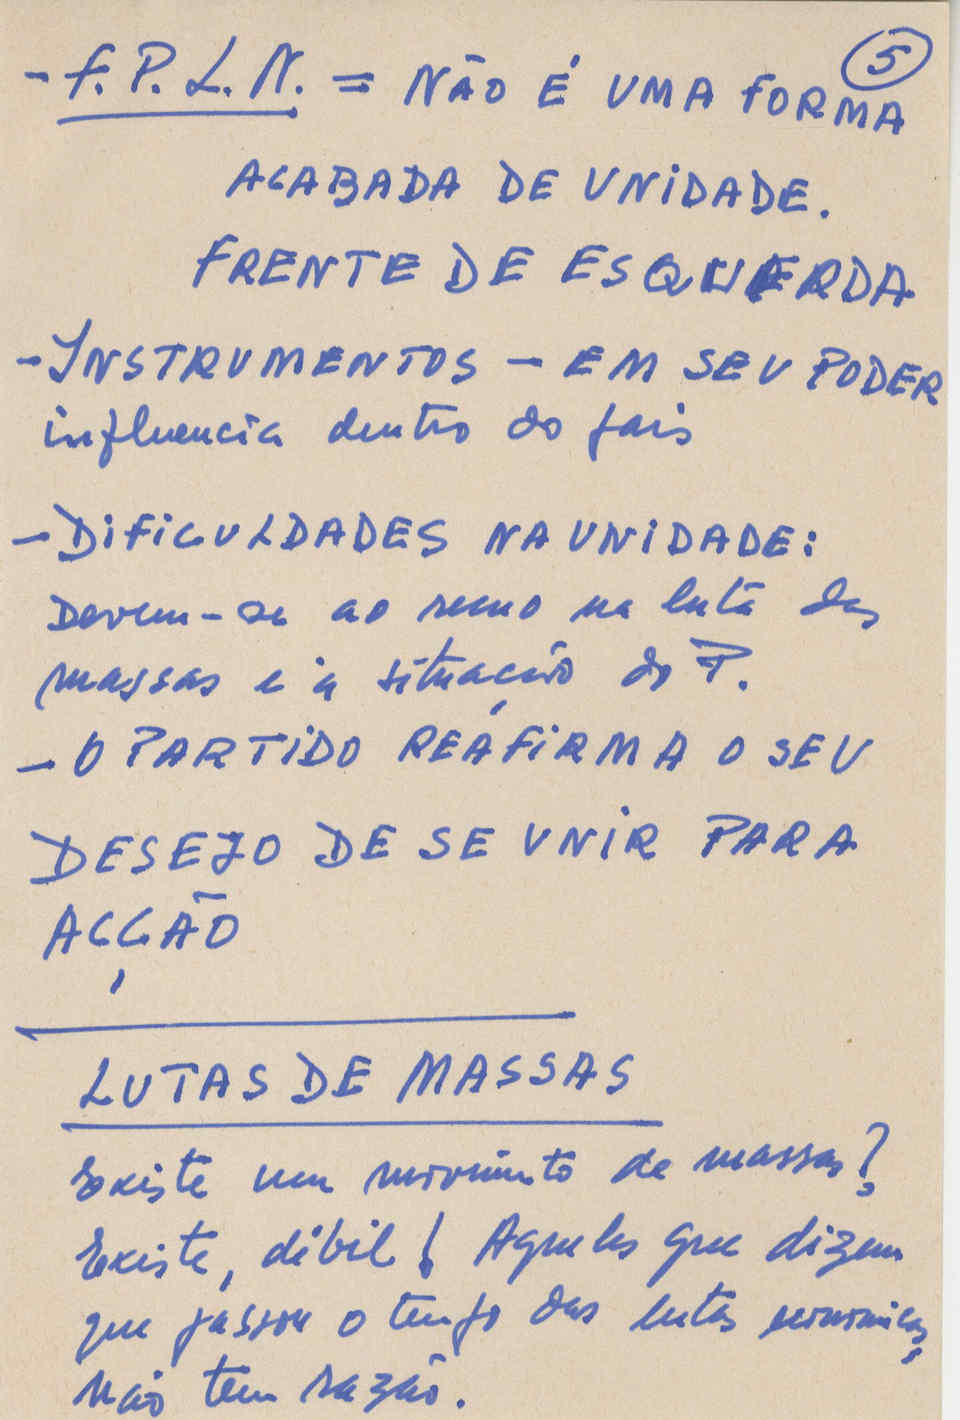 5
- F.P.L.N. = NÃO É UMA FORMA
ACABADA DE UNIDADE.
FRENTE DE ESQUERDA
- INSTRUMENTOS - EM SEU PODER
influencia dentro do pais
- DIFICULDADES NA UNIDADE:
Devem-se ao recuo na luta das
massas e à situação do P.
- O PARTIDO REAFIRMA O SEU
DESEJO DE SE UNIR PARA
ACÇÃO
LUTAS DE MASSAS
Existe um movimento de massas?
Existe, débil! Aqueles que dizem
que passou o tempo das lutas economicas,
não tem razão.